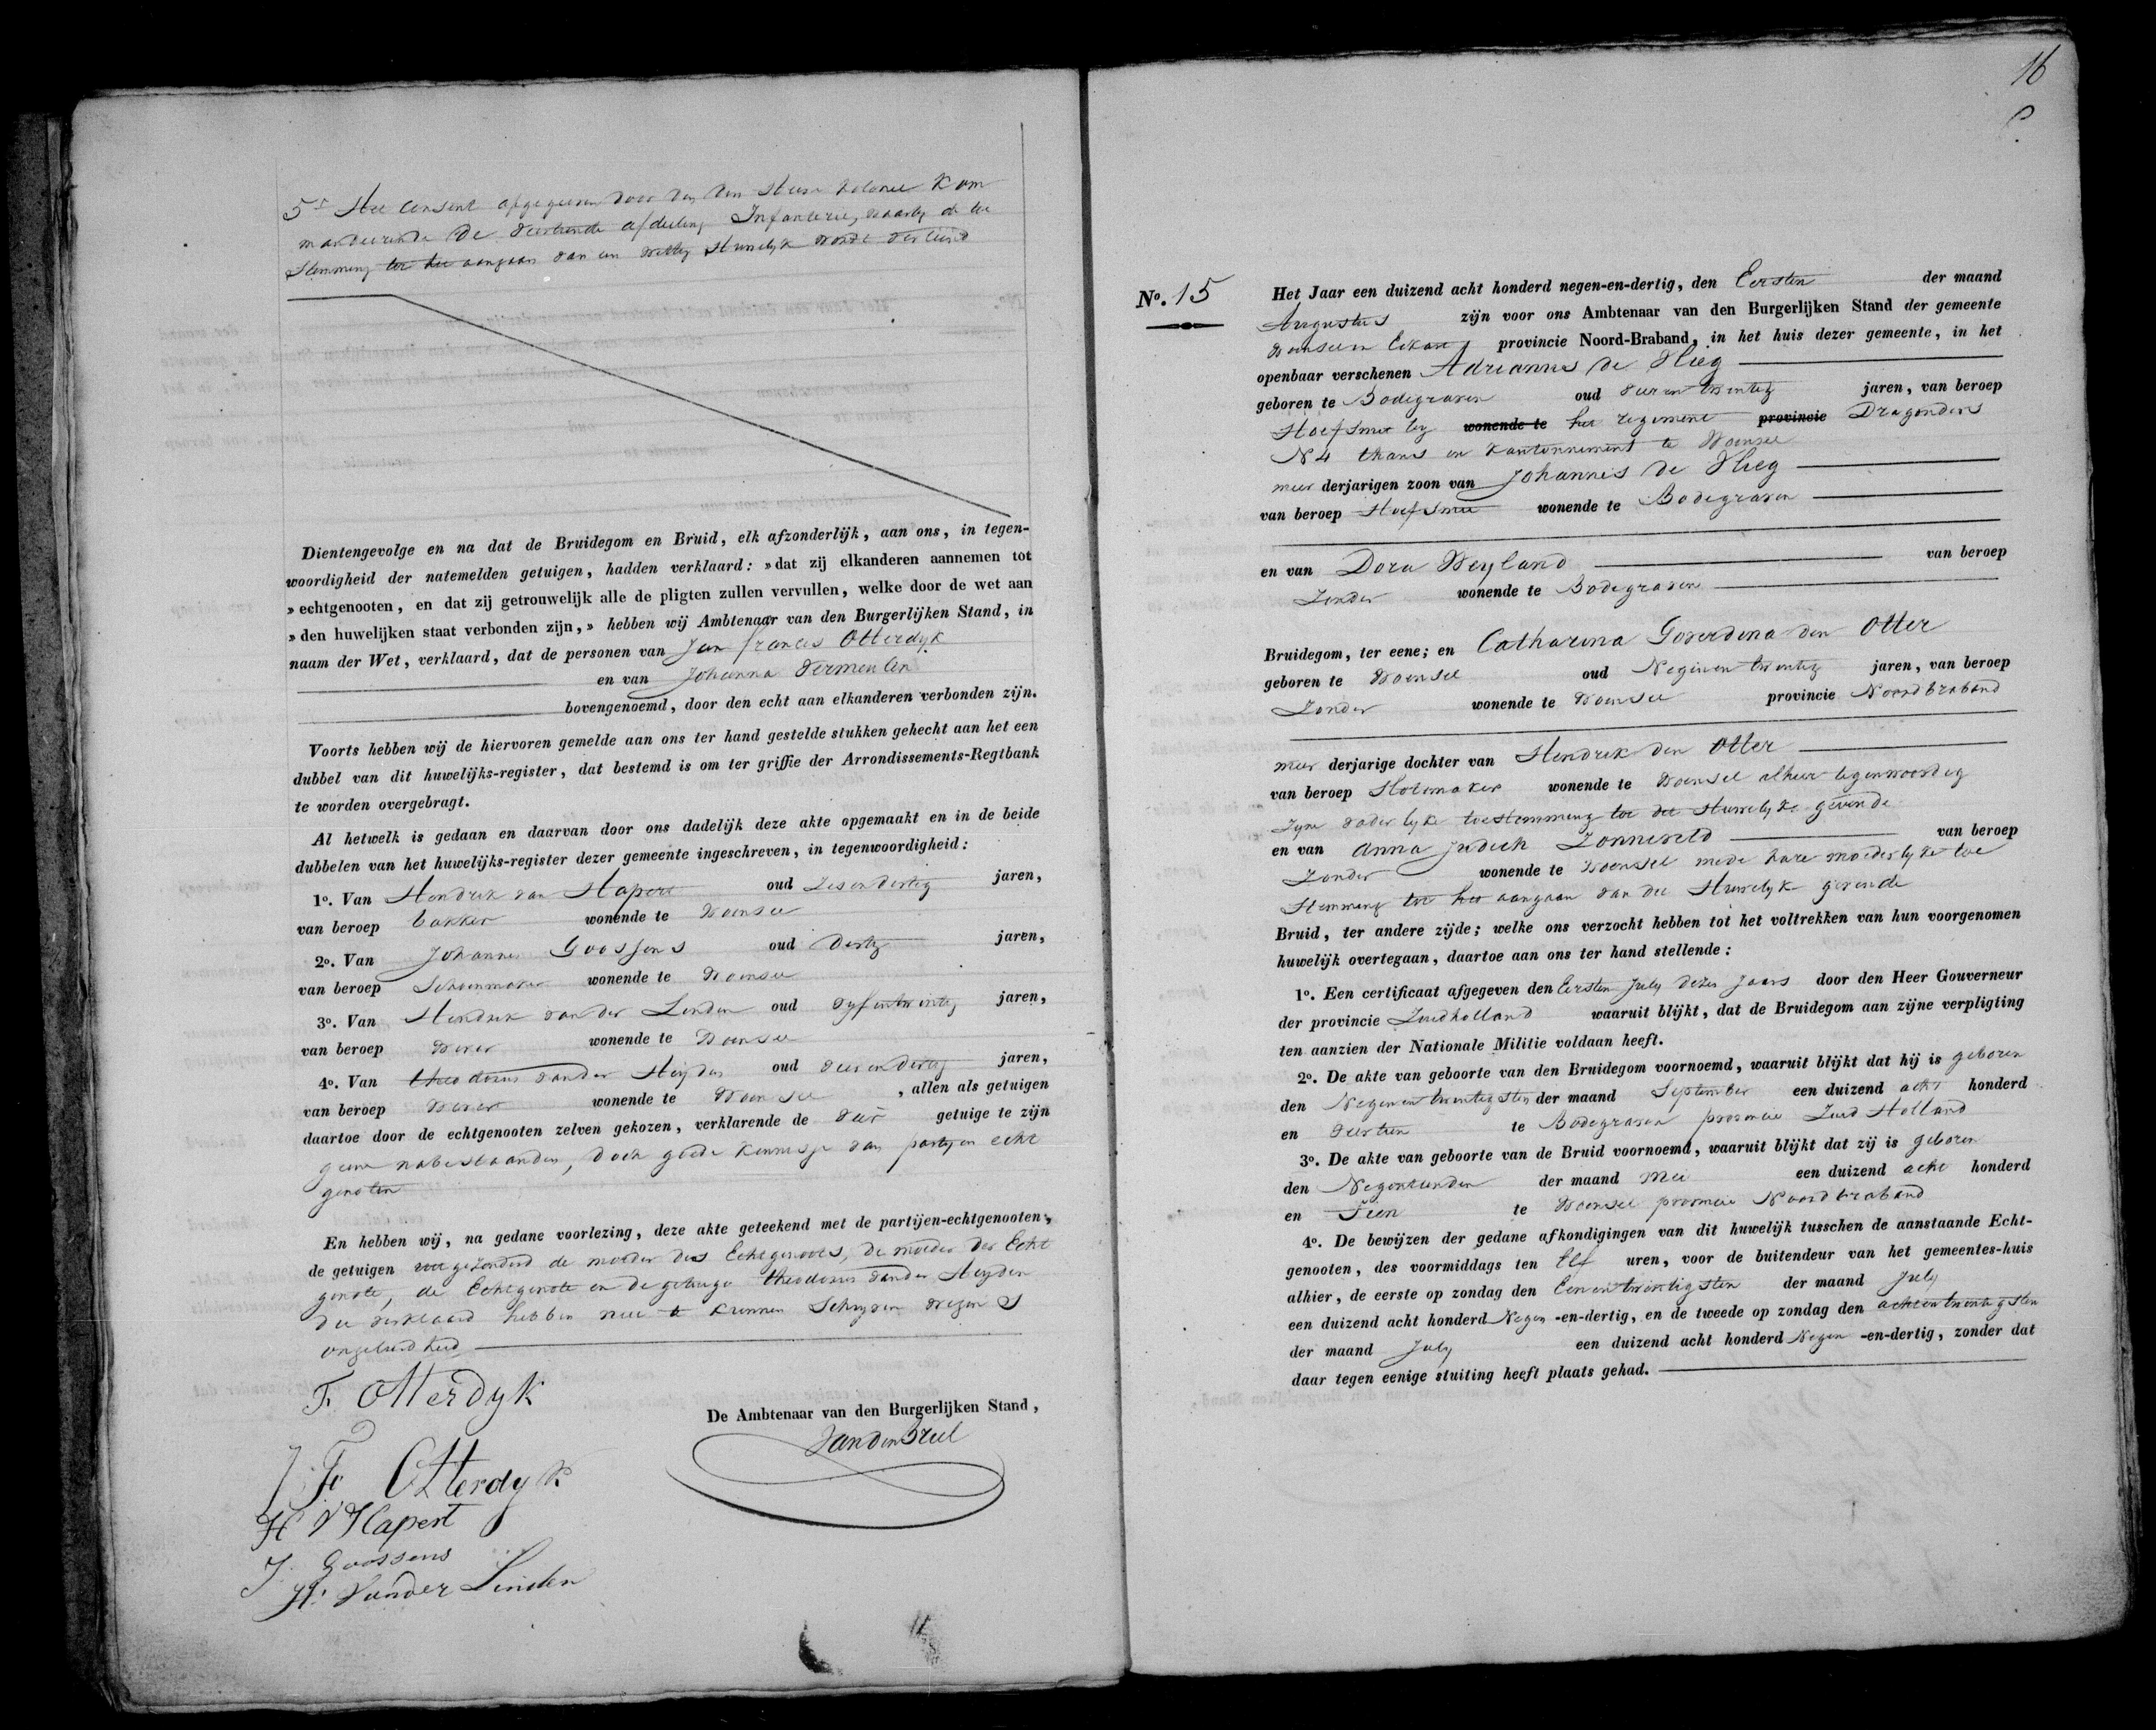 5e Het Consent afgegeven door den Heer Kolonel Kom
manderende de veertiende afdeeling Infanterie, waarby de toe
Stemming tot het aangaan van een Wettig Huwelyk wordt verleend
Dientengevolge en na dat de Bruidegom en Bruid, elk afzonderlijk, aan ons, in tegen-
woordigheid der natemelden getuigen, hadden verklaard: »dat zij elkanderen aannemen tot
»echtgenooten, en dat zij getrouwelijk alle de pligten zullen vervullen, welke door de wet aan
»den huwelijken staat verbonden zijn,» hebben wij Ambtenaar van den Burgerlijken Stand, in
naam der Wet, verklaard, dat de personen van Jan francis Otterdyk
en van Johanna Vermeulen
bovengenoemd, door den echt aan elkanderen verbonden zijn.
Voorts hebben wij de hiervoren gemelde aan ons ter hand gestelde stukken gehecht aan het een
dubbel van dit huwelijks-register, dat bestemd is om ter griffie der Arrondissements-Regtbank
te worden overgebragt.
Al hetwelk is gedaan en daarvan door ons dadelijk deze akte opgemaakt en in de beide
dubbelen van het huwelijks-register dezer gemeente ingeschreven, in tegenwoordigheid:
1o. Van Hendrik van Hapert oud Zesendertig jaren,
van beroep bakker wonende te Woensel
2o. Van Johannes Goossens oud dertig jaren,
van beroep Schoenmaker wonende te Woensel
3o. Van Hendrik van der Linden oud vyfentwintig jaren,
van beroep Wever wonende te Woensel
4o. Van theodorus vander Heyden oud vierendertig jaren,
van beroep Wever wonende te Woensel, allen als getuigen
daartoe door de echtgenooten zelven gekozen, verklarende de vier getuige te zijn
geene nabestaanden, doch goede kennisse van partyen echt
genoten
En hebben wij, na gedane voorlezing, deze akte geteekend met de partijen-echtgenooten,
de getuigen uitgezonderd de moeder des Echtgenoots, de moeder der Echt
genote, de Echtgenote en de getuige theodorus vander Heyden
die verklaard hebben niet te kunnen Schryven wegens
ongeleerdheid
F. Otterdyk
J F Otterdyk
H v Hapert
J. Goossens
H. Vander Linden
De Ambtenaar van den Burgerlijken Stand,
16
No. 15
Het Jaar een duizend acht honderd negen-en-dertig, den Eersten der maand
Augustus zijn voor ons Ambtenaar van den Burgerlijken Stand der gemeente
Woensel en Eckart provincie Noord-Braband, in het huis dezer gemeente, in het
openbaar verschenen Adrianus de Vlieg
geboren te Bodegraven oud vierentwintig jaren, van beroep
Hoefsmit by wonende te het regiment provincie Dragonders
N 4 thans in kantonnement te Woensel
meer derjarigen zoon van Johannis de Vlieg
van beroep Hoefsmit wonende te Bodegraven
en van Dora Weyland van beroep
Zonder wonende te Bodegraven
Bruidegom, ter eene; en Catharina Goverdina den Otter
geboren te Woensel oud Negenentwintig jaren, van beroep
Zonder wonende te Woensel provincie Noordbraband
meer derjarige dochter van Hendrik den Otter
van beroep Slotemaker wonende te Woensel alhier tegenwoordig
Zyne vaderlyke toestemming tot dit Huwelyke gevende
en van Anna Judith Zonneveld van beroep
Zonder wonende te Woensel mede hare moederlyke toe
Stemming tot het aangaan van dit Huwelyk gevende
Bruid, ter andere zijde; welke ons verzocht hebben tot het voltrekken van hun voorgenomen
huwelijk overtegaan, daartoe aan ons ter hand stellende:
1o. Een certificaat afgegeven den Eersten July dezes Jaars door den Heer Gouverneur
der provincie Zuidholland waaruit blijkt, dat de Bruidegom aan zijne verpligting
ten aanzien der Nationale Militie voldaan heeft.
2o. De akte van geboorte van den Bruidegom voornoemd, waaruit blijkt dat hij is geboren
den Negenentwintigsten der maand September een duizend acht honderd
en veertien te Bodegraven provincie Zuid Holland
3o. De akte van geboorte van de Bruid voornoemd, waaruit blijkt dat zij is geboren
den Negentienden der maand Mei een duizend acht honderd
en Tien te Woensel provincie Noordbraband
4o. De bewijzen der gedane afkondigingen van dit huwelijk tusschen de aanstaande Echt-
genooten, des voormiddags ten Elf uren, voor de buitendeur van het gemeentes-huis
alhier, de eerste op zondag den Eenentwintigsten der maand July
een duizend acht honderd Negen-en-dertig, en de tweede op zondag den achtentwintigsten
der maand July een duizend acht honderd Negen-en-dertig, zonder dat
daar tegen eenige stuiting heeft plaats gehad.